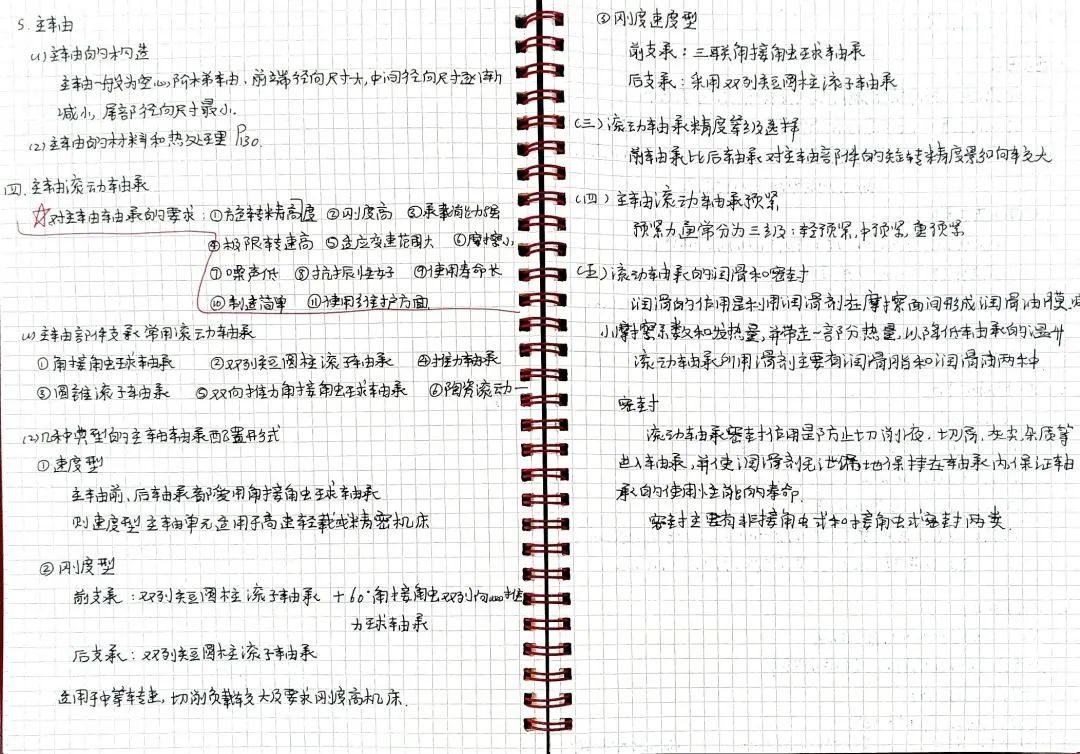 5. 主轴
(1) 主轴的构造
主轴一般为空心阶梯轴, 前端径向尺寸大, 中间径向尺寸逐渐
减小, 尾部径向尺寸最小.
(2) 主轴的材料和热处理 P130.
四. 主轴滚动轴承
☆对主轴轴承的要求: ①旋转精高度 ②刚度高 ③承载能力强
④极限转速高 ⑤适应变速范围大 ⑥摩擦小
⑦噪声低 ⑧抗振性好 ⑨使用寿命长
⑩制造简单 ⑪使用维护方面
(1) 主轴部件支承常用滚动轴承
①角接触球轴承 ②双列短圆柱滚子轴承 ④推力轴承
③圆锥滚子轴承 ⑤双向推力角接触球轴承 ⑥陶瓷滚动一
(2) 几种典型的主轴轴承配置形式
①速度型
主轴前、后轴承都用角接触球轴承
则速度型主轴单元适用于高速轻载或精密机床
②刚度型
前支承: 双列短圆柱滚子轴承 + 60°角接触双列向心推
力球轴承
后支承: 双列短圆柱滚子轴承
适用于中等转速, 切削负载较大及要求刚度高机床.
③刚度速度型
前支承: 三联角接触球轴承
后支承: 采用双列短圆柱滚子轴承
(三) 滚动轴承精度等级选择
前轴承比后轴承对主轴部件的旋转精度影响较大
(四) 主轴滚动轴承预紧
预紧力通常分为三级: 轻预紧, 中预紧, 重预紧
(五) 滚动轴承的润滑和密封
润滑的作用是利用润滑剂在摩擦面间形成润滑油膜,
小摩擦系数和发热量, 并带走一部分热量, 以降低轴承的温升
滚动轴承所用滑剂主要有润滑脂和润滑油两种
密封
滚动轴承密封作用是防止切削液、切屑、灰尘、杂质等
进入轴承, 并使润滑剂无泄漏地保持在轴承内, 保证轴
承的使用性能的寿命.
密封主要有非接触式和接触式密封两类.